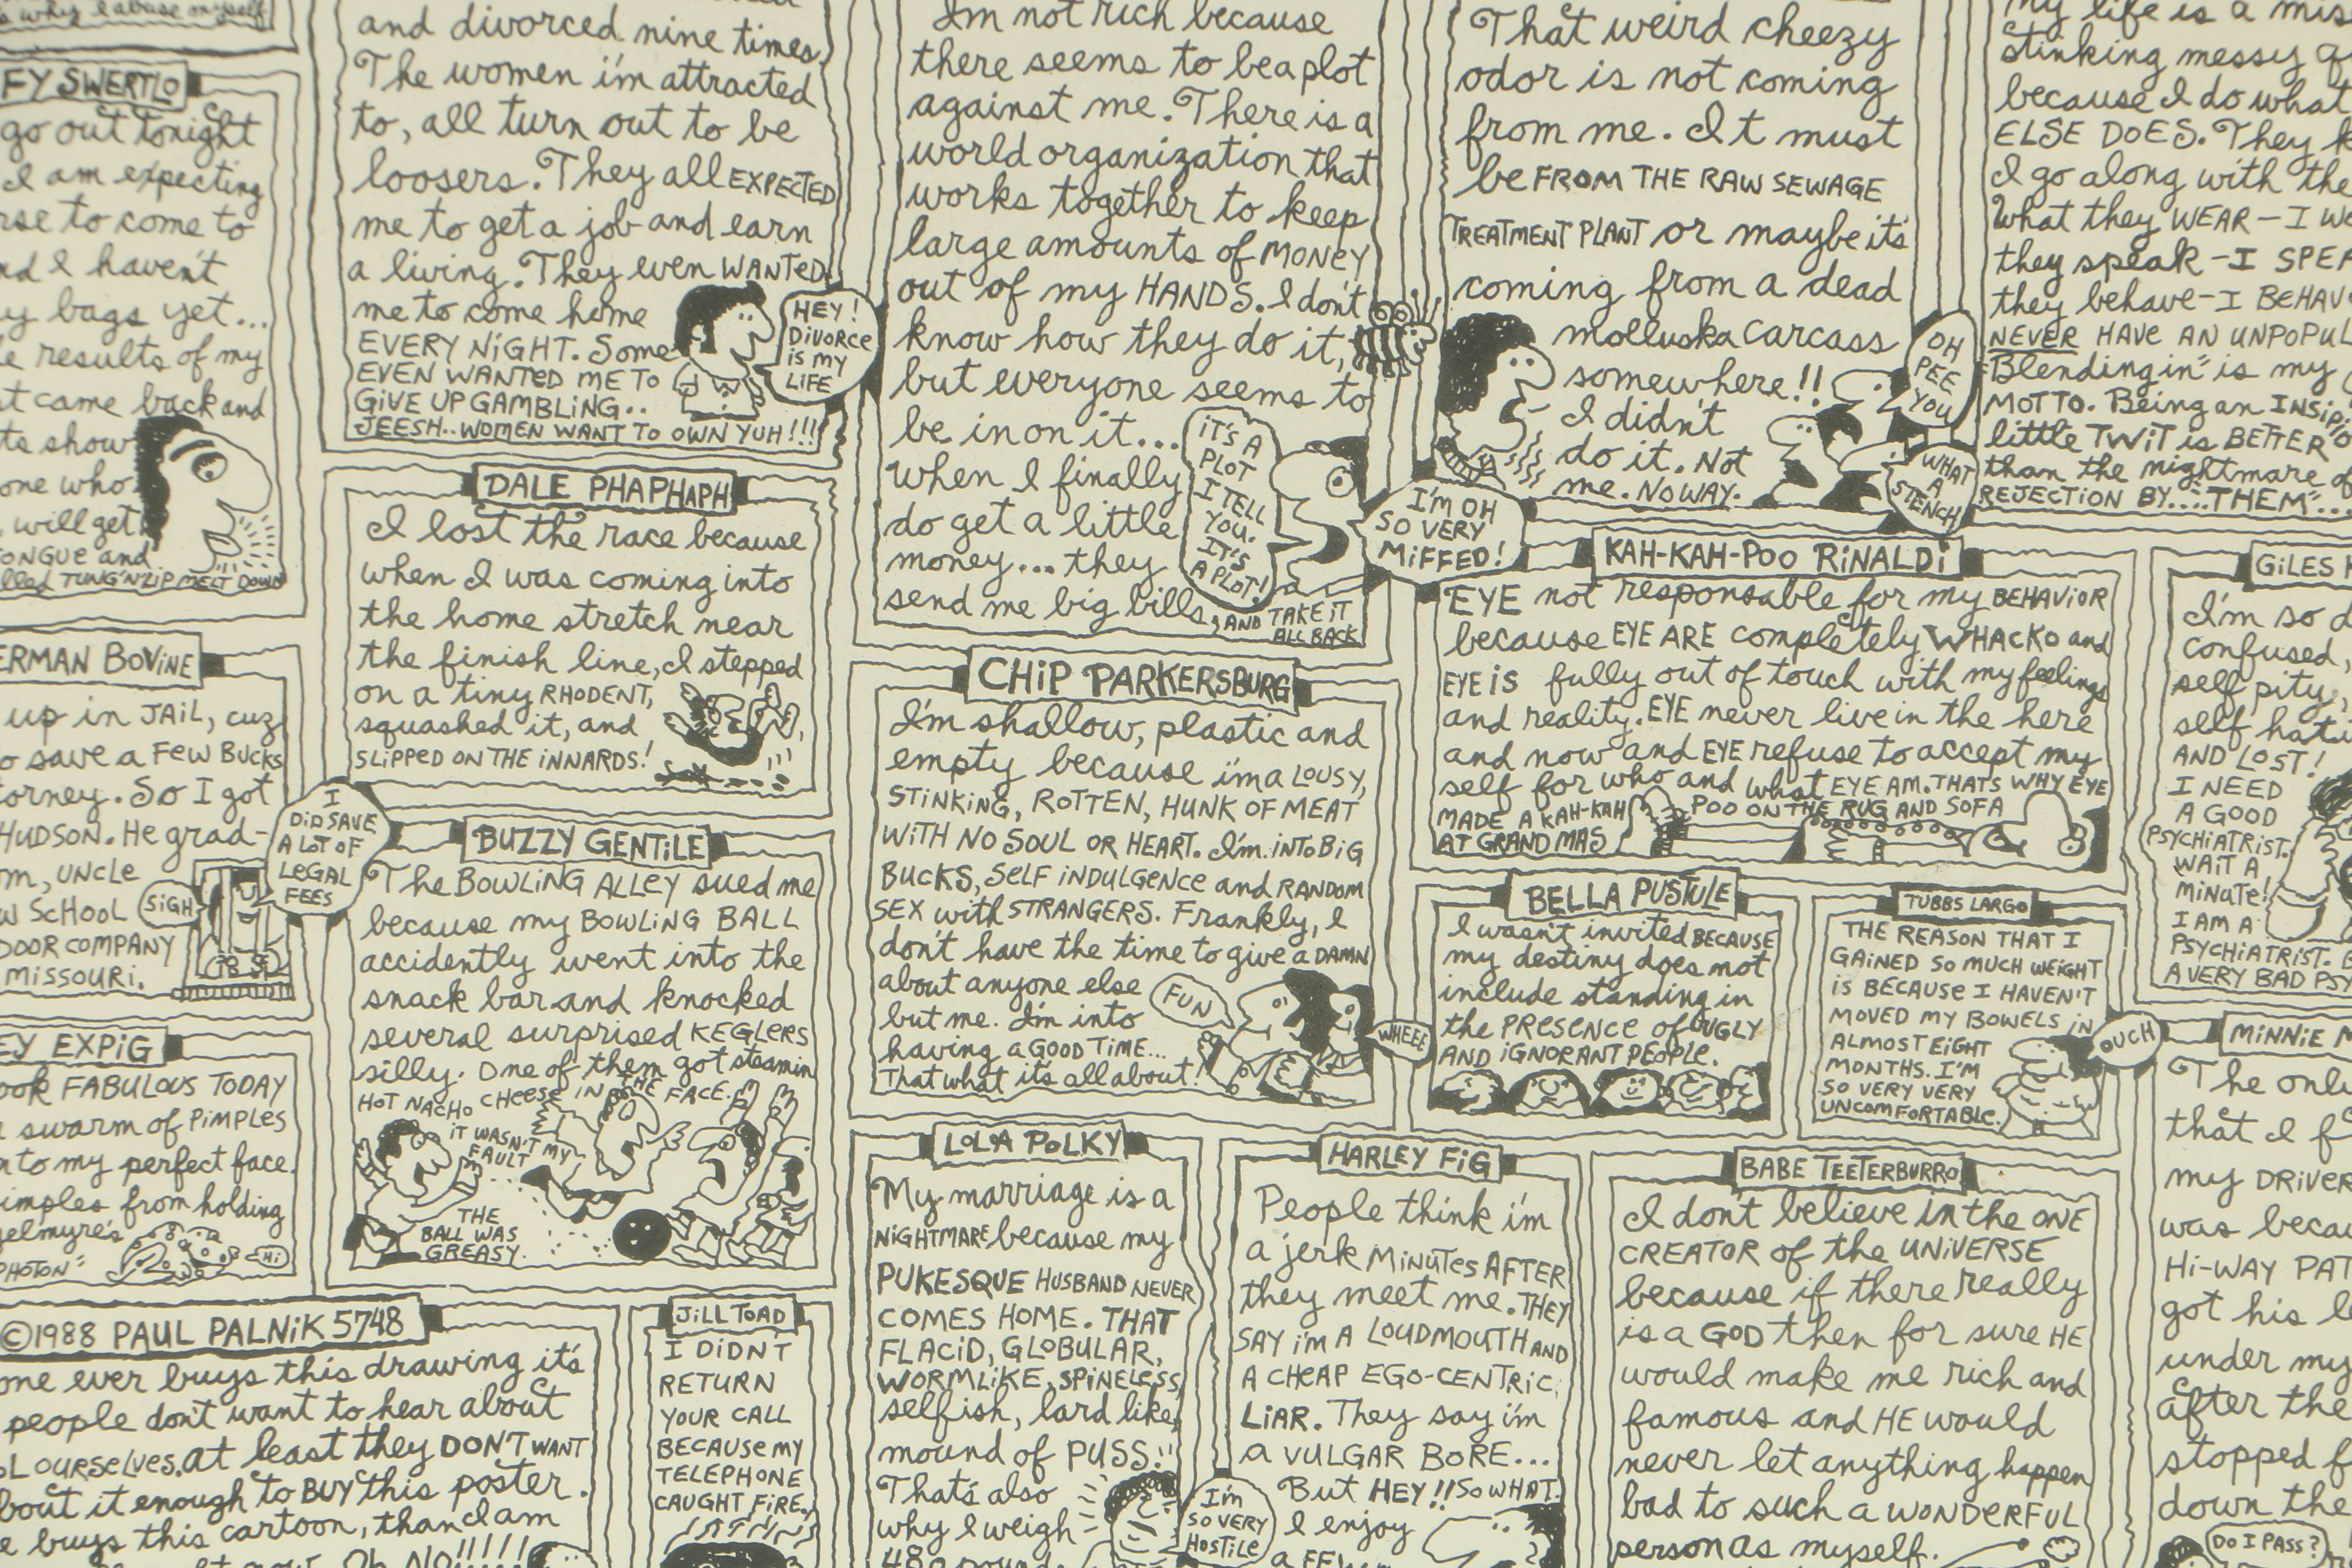 why I abuse myself
FY SWERTLO
go out tonight
I am expecting
rse to come to
nd I haven't
y bags yet...
le results of my
st came back and
ts show
one who
, will get
ongue and
lled TUNG 'N' ZIP MELT DOWN
ERMAN BOVINE
up in JAIL, cuz
o save a FEW BUCKS
orney. So I got
HUDSON. He grad-
om, UNCLE
W SCHOOL
DOOR COMPANY
MISSOURI.
SIGH
I
DID SAVE
A LOT OF
LEGAL
FEES
EY EXPIG
ook FABULOUS TODAY
a swarm of PIMPLES
nto my perfect face.
imples from holding
gelmyre's
PHOTON"
HI
©1988 PAUL PALNIK 5748
one ever buys this drawing it's
people don't want to hear about
OL OURSELVES. at least they DON'T WANT
bout it enough to BUY this poster.
e buys this cartoon, than I am
now. Oh NO!!!!!
and divorced nine times.
The women i'm attracted
to, all turn out to be
loosers. They all EXPECTED
me to get a job and earn
a living. They even WANTED
me to come home
EVERY NIGHT. Some
EVEN WANTED ME TO
GIVE UP GAMBLING..
JEESH.. WOMEN WANT TO OWN YUH!!!
HEY!
DIVORCE
IS MY
LIFE
DALE PHAPHAPH
I lost the race because
when I was coming into
the home stretch near
the finish line, I stepped
on a tiny RHODENT,
squashed it, and
SLIPPED ON THE INNARDS!
BUZZY GENTILE
The BOWLING ALLEY sued me
because my BOWLING BALL
accidently went into the
snack bar and knocked
several surprised KEGLERS
silly. One of them got steamin
HOT NACHO CHEESE IN THE FACE.
IT WASN'T MY
FAULT
THE
BALL WAS
GREASY.
JILL TOAD
I DIDN'T
RETURN
YOUR CALL
BECAUSE MY
TELEPHONE
CAUGHT FIRE.
I'm not rich because
there seems to be a plot
against me. There is a
world organization that
works together to keep
large amounts of MONEY
out of my HANDS. I don't
know how they do it,
but everyone seems to
be in on it...
when I finally
do get a little
money... they
send me big bills, AND TAKE IT
ALL BACK
IT'S A
PLOT
I TELL
YOU.
IT'S
A PLOT!
CHIP PARKERSBURG
I'm shallow, plastic and
empty because i'm a LOUSY,
STINKING, ROTTEN, HUNK OF MEAT
WITH NO SOUL OR HEART. I'm INTO BIG
BUCKS, SELF INDULGENCE and RANDOM
SEX with STRANGERS. Frankly, I
don't have the time to give a DAMN
about anyone else
but me. I'm into
having a GOOD TIME...
That what it's all about!
FUN
WHEEE
LOLA POLKY
My marriage is a
NIGHTMARE because my
PUKESQUE HUSBAND NEVER
COMES HOME. THAT
FLACID, GLOBULAR,
WORMLIKE, SPINELESS,
selfish, lard like,
mound of PUSS!!
That's also
why I weigh
480 pounds
HARLEY FIG
People think i'm
a jerk MINUTES AFTER
they meet me. THEY
SAY i'm A LOUDMOUTH AND
A CHEAP EGO-CENTRIC,
LIAR. They say i'm
a VULGAR BORE...
But HEY!! SO WHAT.
I enjoy
a FEW
I'm
SO VERY
HOSTILE
That weird cheezy
odor is not coming
from me. It must
be FROM THE RAW SEWAGE
TREATMENT PLANT or maybe it's
coming from a dead
molluska carcass
somewhere!!
I didn't
do it. Not
me. NO WAY.
I'M OH
SO VERY
MIFFED!
OH
PEE
YOU
WHAT
A
STENCH
KAH-KAH-POO RINALDI
EYE not responsable for my BEHAVIOR
because EYE ARE completely WHACKO and
EYE IS fully out of touch with my feelings
and reality. EYE never live in the here
and now and EYE refuse to accept my
self for who and what EYE AM. THATS WHY EYE
MADE A KAH-KAH POO ON THE RUG AND SOFA
AT GRAND MAS
BELLA PUSTULE
I wasn't invited BECAUSE
my destiny does not
include standing in
the PRESENCE of UGLY
AND IGNORANT PEOPLE.
TUBBS LARGO
THE REASON THAT I
GAINED SO MUCH WEIGHT
IS BECAUSE I HAVEN'T
MOVED MY BOWELS IN
ALMOST EIGHT
MONTHS. I'M
SO VERY VERY
UNCOMFORTABLE.
OUCH
BABE TEETERBURRO
I don't believe in the ONE
CREATOR of the UNIVERSE
because if there really
is a GOD then for sure HE
would make me rich and
famous and HE would
never let anything happen
bad to such a WONDERFUL
person as myself.
my life is a mis
stinking messy
because I do what
ELSE DOES. They k
I go along with the
What they WEAR - I WE
they speak - I SPEA
they behave - I BEHAV
NEVER HAVE AN UNPOPUL
"Blending in" is my
MOTTO. Being an INSIPI
little TWIT is BETTER
than the nightmare of
REJECTION BY...."THEM"...
GILES
I'm so
confused,
self pity,
self hat
AND LOST!
I NEED
A GOOD
PSYCHIATRIST.
WAIT A
MINUTE!
I AM A
PSYCHIATRIST.
A VERY BAD PSY
MINNIE
The onl
that I f
my DRIVER
was becau
HI-WAY PAT
got his l
under my
after the
stopped f
down the
DO I PASS?